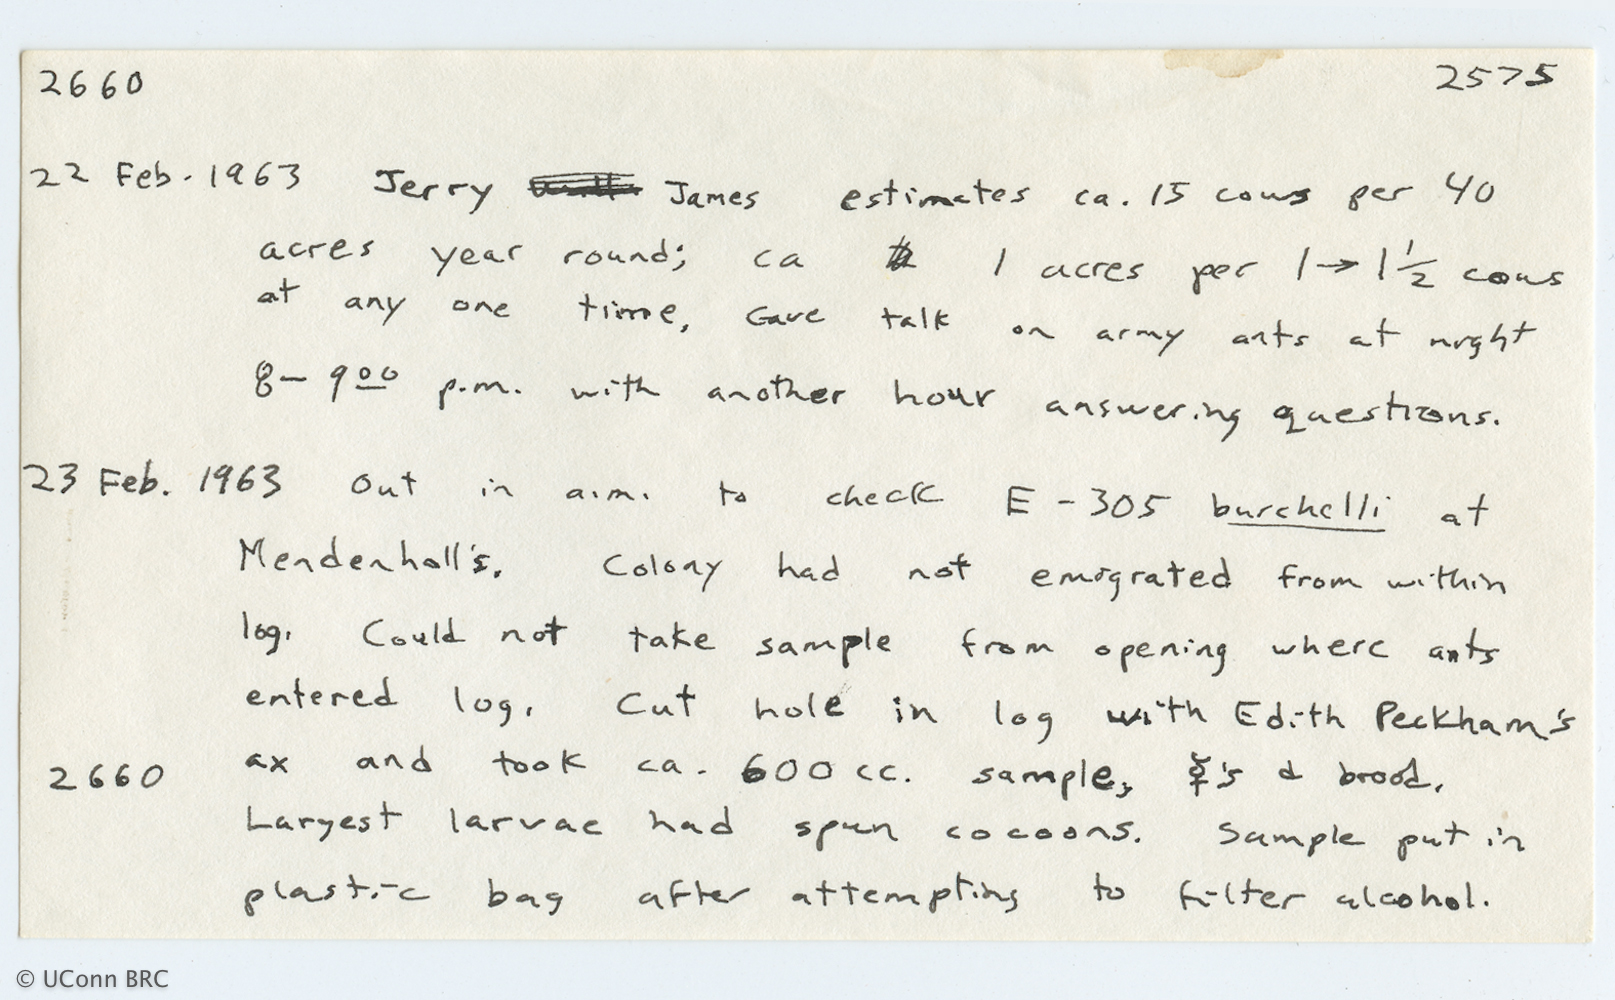 2660 2575
22 Feb. 1963 Jerry James estimates ca. 15 cows per 40
acres year round; ca 1 acres per 1→1½ cows
at any one time. Gave talk on army ants at night
8–9⁰⁰ p.m. with another hour answering questions.
23 Feb. 1963 Out in a.m. to check E-305 burchelli at
Mendenhall's. Colony had not emigrated from within
log. Could not take sample from opening where ants
entered log. Cut hole in log with Edith Peckham's
2660 ax and took ca. 600 cc. sample, ☿'s & brood.
Largest larvae had spun cocoons. Sample put in
plastic bag after attempting to filter alcohol.
© UConn BRC